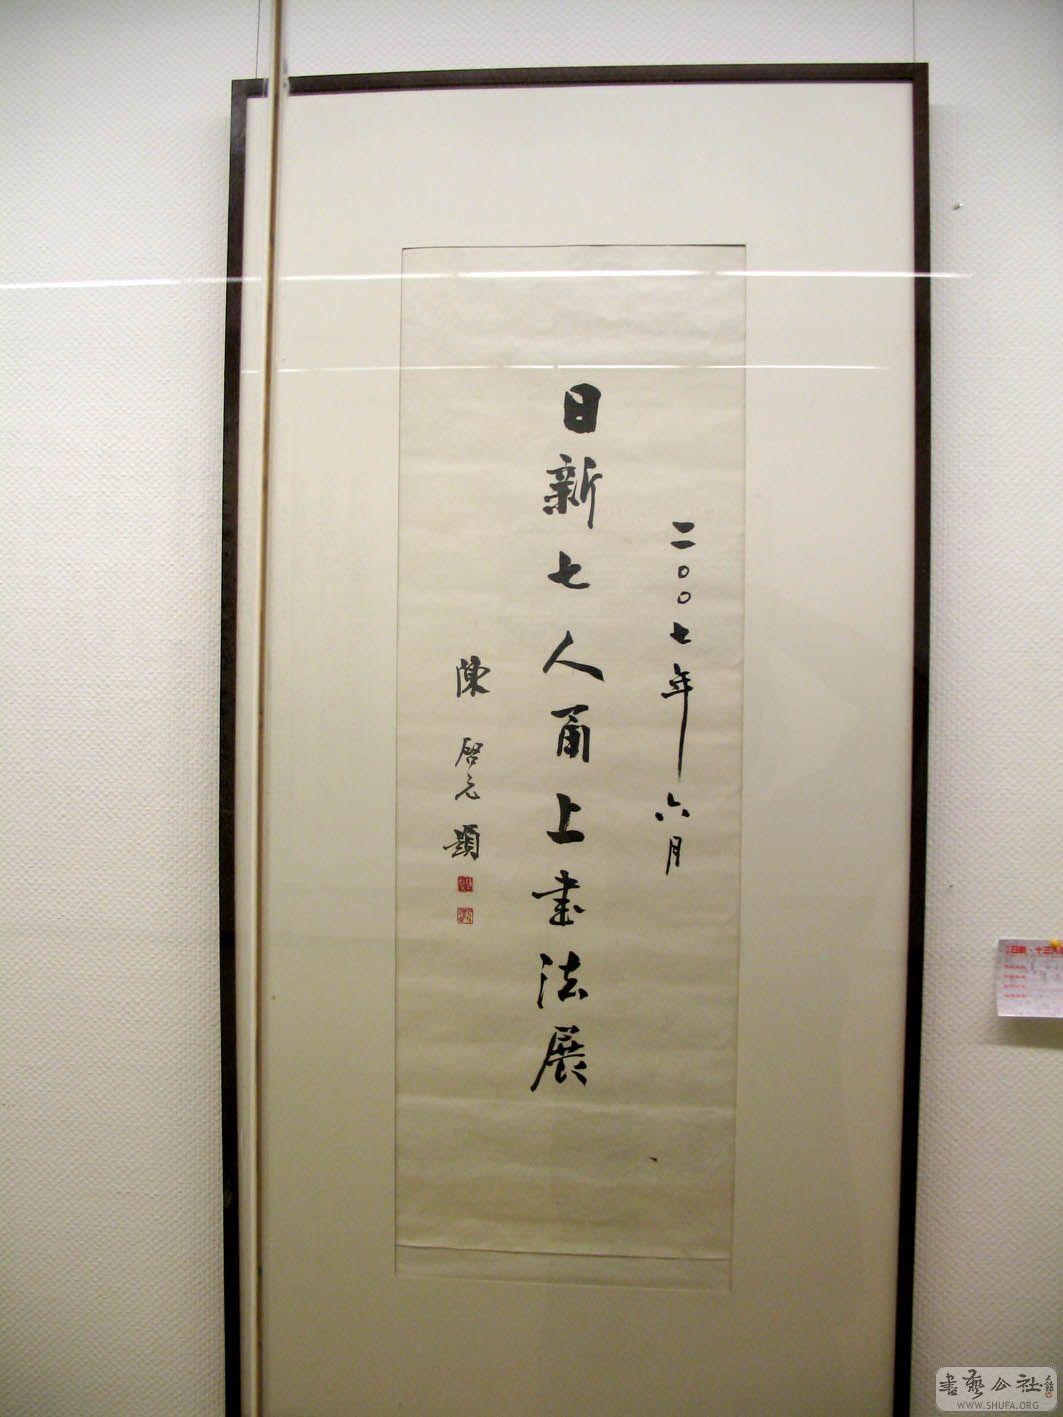 二〇〇七年六月
日新七人甬上書法展
陳啓元題
日新·十三人
書藝公社
WWW.SHUFA.ORG